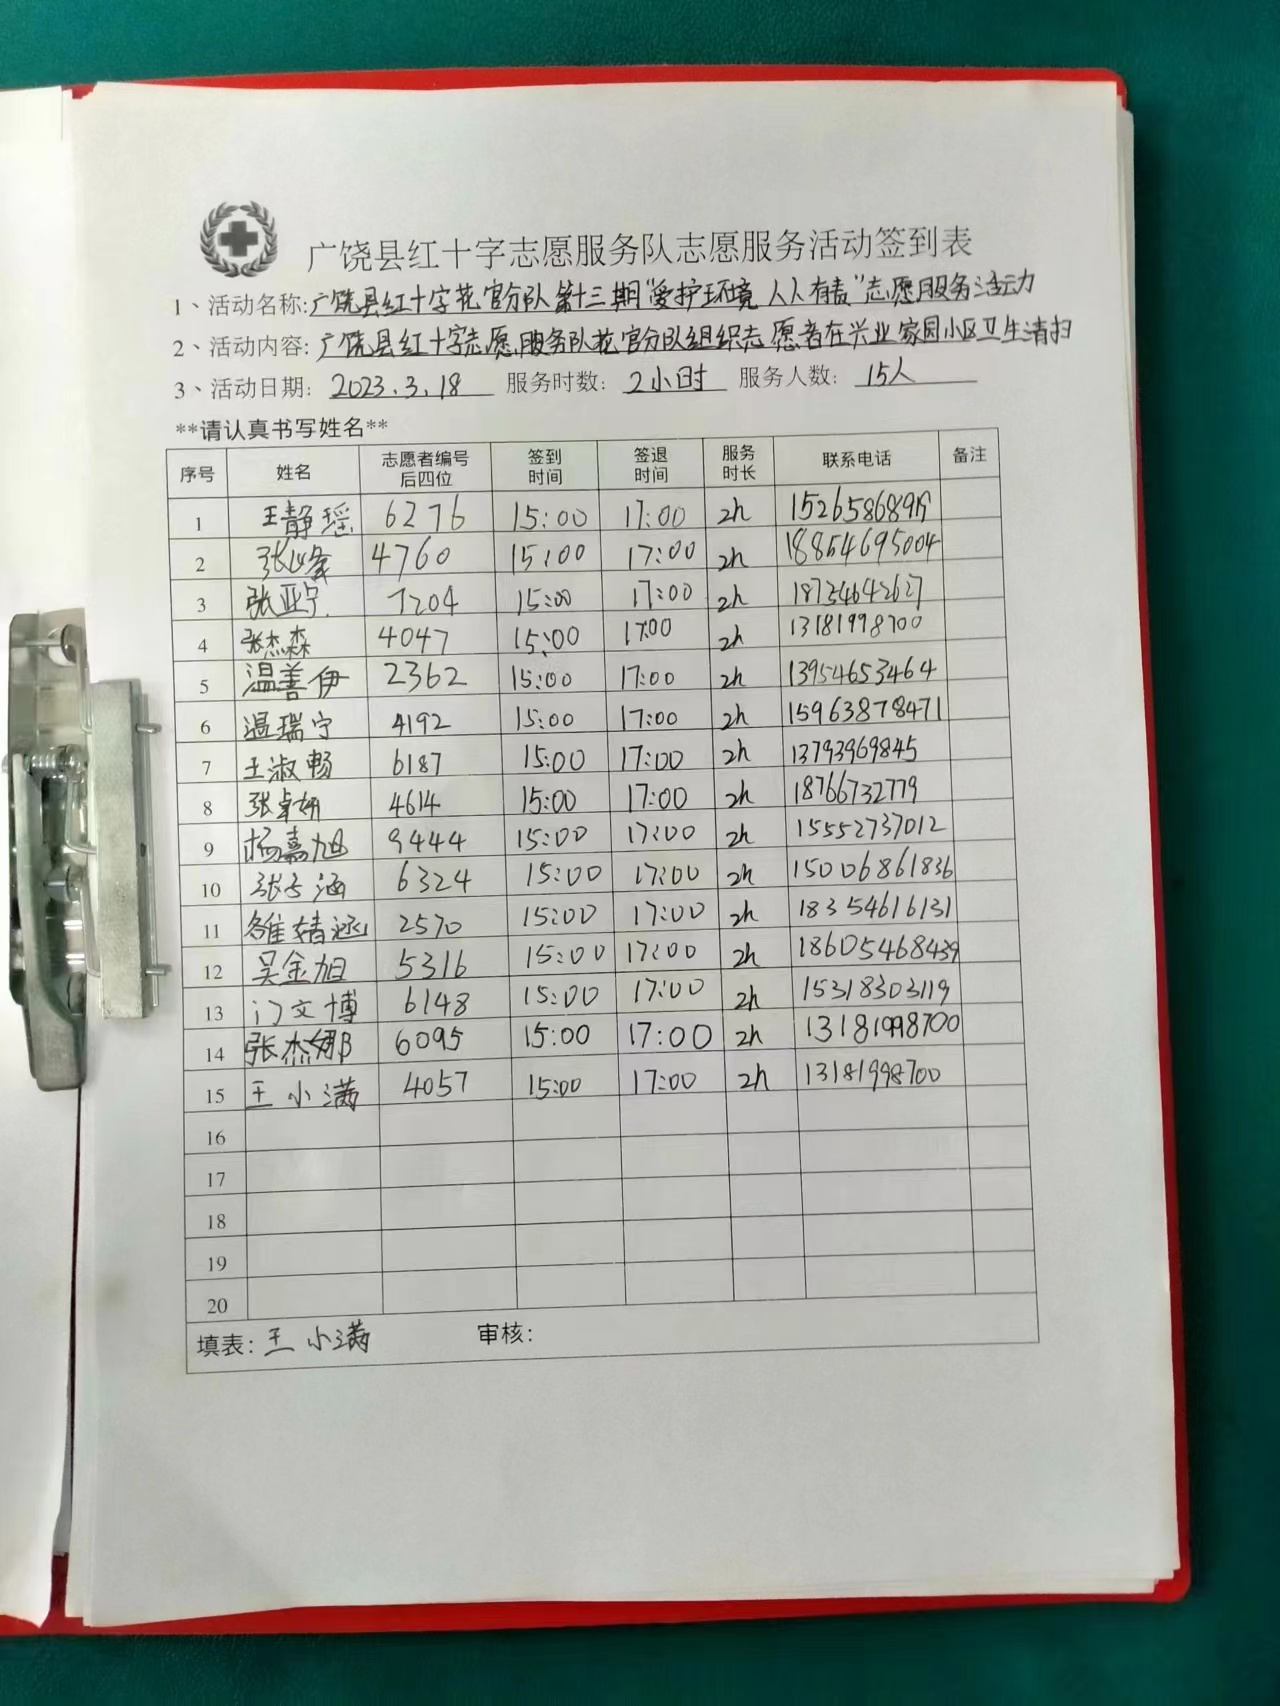 广饶县红十字志愿服务队志愿服务活动签到表
1、活动名称:广饶县红十字花官分队第十三期"爱护环境 人人有责"志愿服务活动
2、活动内容:广饶县红十字志愿服务队花官分队组织志愿者在兴业家园小区卫生清扫
3、活动日期: 2023.3.18 服务时数: 2小时 服务人数: 15人
**请认真书写姓名**
序号 姓名 志愿者编号后四位 签到时间 签退时间 服务时长 联系电话 备注
1 王静瑶 6276 15:00 17:00 2h 152658689
2 张 4760 15:00 17:00 2h 18854695004
3 张亚宁 7204 15:00 17:00 2h 18734642627
4 张杰森 4047 15:00 17:00 2h 13181998700
5 温善伊 2362 15:00 17:00 2h 13954653464
6 温瑞宁 4192 15:00 17:00 2h 15963878471
7 王淑畅 6187 15:00 17:00 2h 13793969845
8 张卓妍 4614 15:00 17:00 2h 18766732779
9 杨嘉旭 9444 15:00 17:00 2h 15552737012
10 张子涵 6324 15:00 17:00 2h 15006861836
11 雒婧涵 2570 15:00 17:00 2h 18354616131
12 吴金旭 5316 15:00 17:00 2h 18605468439
13 门文博 6148 15:00 17:00 2h 15318303119
14 张杰娜 6095 15:00 17:00 2h 13181998700
15 王小满 4057 15:00 17:00 2h 13181998700
16
17
18
19
20
填表: 王小满 审核: